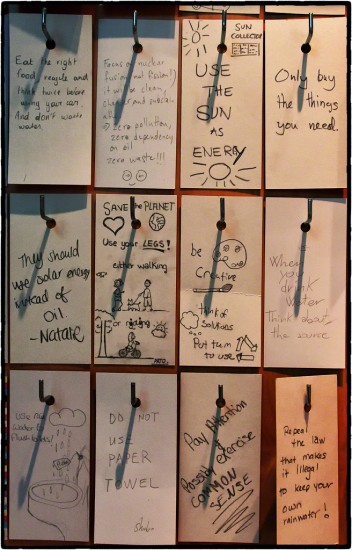 Eat the right
food, recycle and
think twice before
using your car.
And don't waste
water.
Focus on nuclear
fusion (not fission!)
it will be clean,
zero pollution,
zero dependency
on oil
zero waste!!!
SUN
COLLECTOR
USE
THE
SUN
AS
ENERGY
Only buy
the things
you need.
They should
use solar energy
instead of
oil
-Natalie
SAVE the PLANET
Use your LEGS!
either walking
or riding
be
Creative
Think of
Solutions
Put them
to use
When
you
drink
water
Think about
the source
Use
water to
flush toilets!
DO NOT
USE
PAPER
TOWEL
Pay Attention
&
Possibly Exercise
COMMON
SENSE
Repeal
the law
that makes
it illegal
to keep your
own
rainwater!